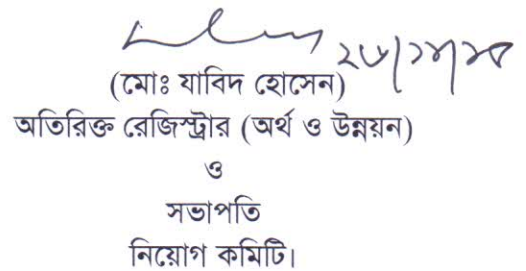 (মোঃ যাবিদ হোসেন)
অতিরিক্ত রেজিস্ট্রার (অর্থ ও উন্নয়ন)
ও
সভাপতি
নিয়োগ কমিটি।